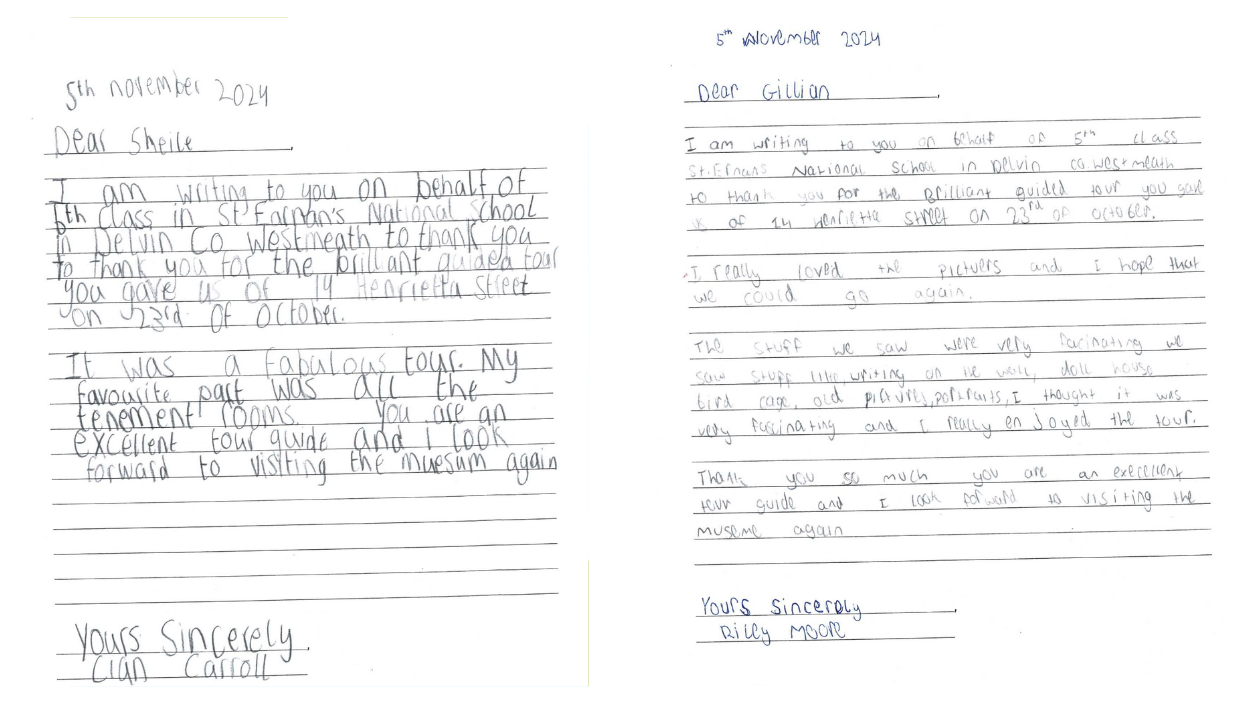 5th november 2024
Dear Sheile
I am writing to you on behalf of
6th class in St Farnan's National School
in Delvin Co Westmeath to thank you
to thank you for the brilliant guided tour
you gave us of 14 Henrietta Street
on 23rd of October.
It was a fabulous tour. My
favourite part was all the
tenement rooms. You are an
excellent tour guide and I look
forward to visiting the muesum again
Yours Sincerely,
Cian Carroll
5th November 2024
Dear Gillian
I am writing to you on behalf of 5th class
St. Ernans National School in Delvin co. westmeath
to thank you for the Brilliant guided tour you gave
us of 14 Henrietta Street on 23rd of october.
I really loved the pictuers and I hope that
we could go again.
The stuff we saw were very facinating we
saw stuff like writing on the wall, doll house
bird cage, old pictures, portraits, I thought it was
very fascinating and I really en Joyed the tour.
Thank you so much you are an
tour guide and I look forward to visiting the
museme again
Yours Sincerely
Rilly Moore